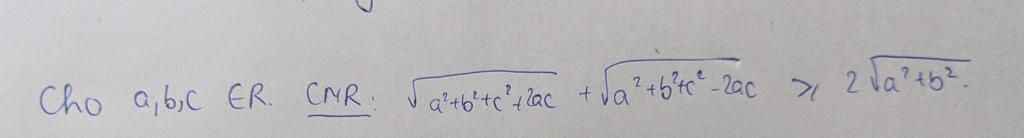 Cho a,b,c ∈ R. CMR: √(a²+b²+c²+2ac) + √(a²+b²+c²-2ac) ≥ 2√(a²+b²).